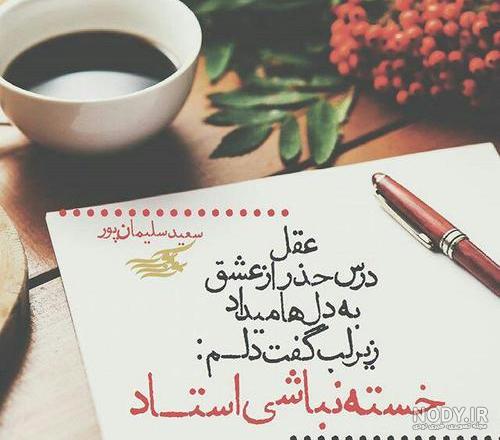 سعید سلیمان‌پور
عقل
درس حذر از عشق
به دل‌ها میداد
زیر لب گفت دلم:
خسته نباشی استاد
NODY.IR
مجله تصویری، خبری نودی